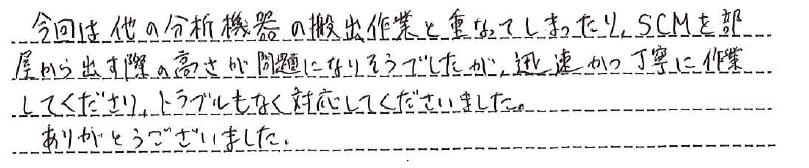 今回は他の分析機器の搬出作業と重なってしまったり、SCMを部
屋から出す際の高さが問題になりそうでしたが、迅速かつ丁寧に作業
してくださり、トラブルもなく対応してくださいました。
ありがとうございました。